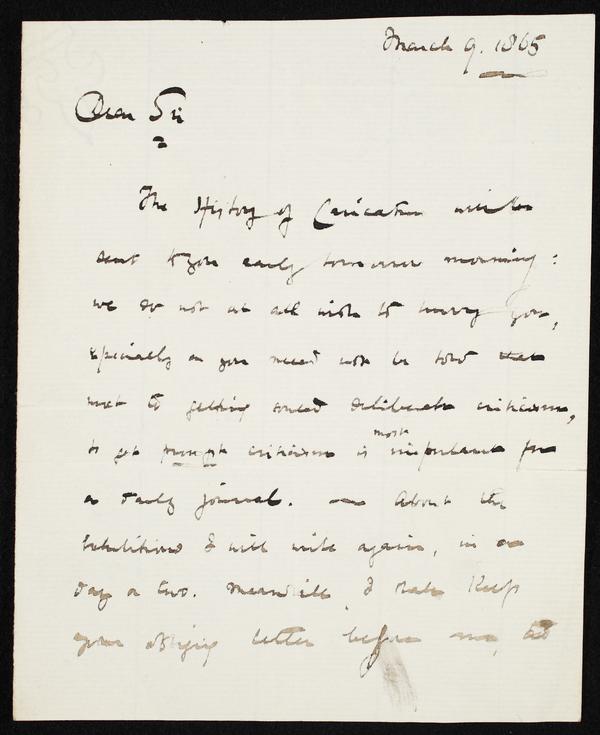 March 9. 1865
Dear Sir
The History of Caricature will be
sent to you early tomorrow morning:
we do not at all wish to hurry you,
especially as you need not be told that
next to getting sound deliberate criticism,
to get prompt criticism is most important for
a daily journal. — About the
Exhibitions I will write again, in a
day or two. Meanwhile I shall keep
your obliging letter before me, and